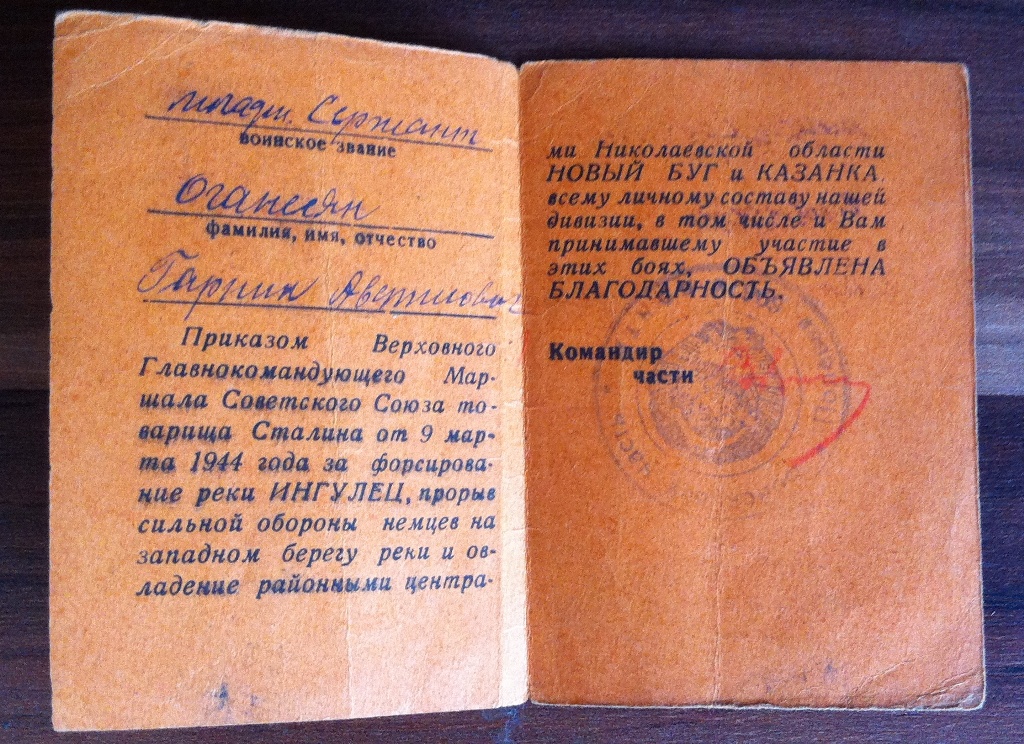 младш. Сержант
воинское звание
Оганесян
фамилия, имя, отчество
Гарник
Приказом Верховного
Главнокомандующего Мар-
шала Советского Союза то-
варища Сталина от 9 мар-
та 1944 года за форсирова-
ние реки ИНГУЛЕЦ, прорыв
сильной обороны немцев на
западном берегу реки и ов-
ладение районными центра-
ми Николаевской области
НОВЫЙ БУГ и КАЗАНКА,
всему личному составу нашей
дивизии, в том числе и Вам
принимавшему участие в
этих боях, ОБЪЯВЛЕНА
БЛАГОДАРНОСТЬ.
Командир
части